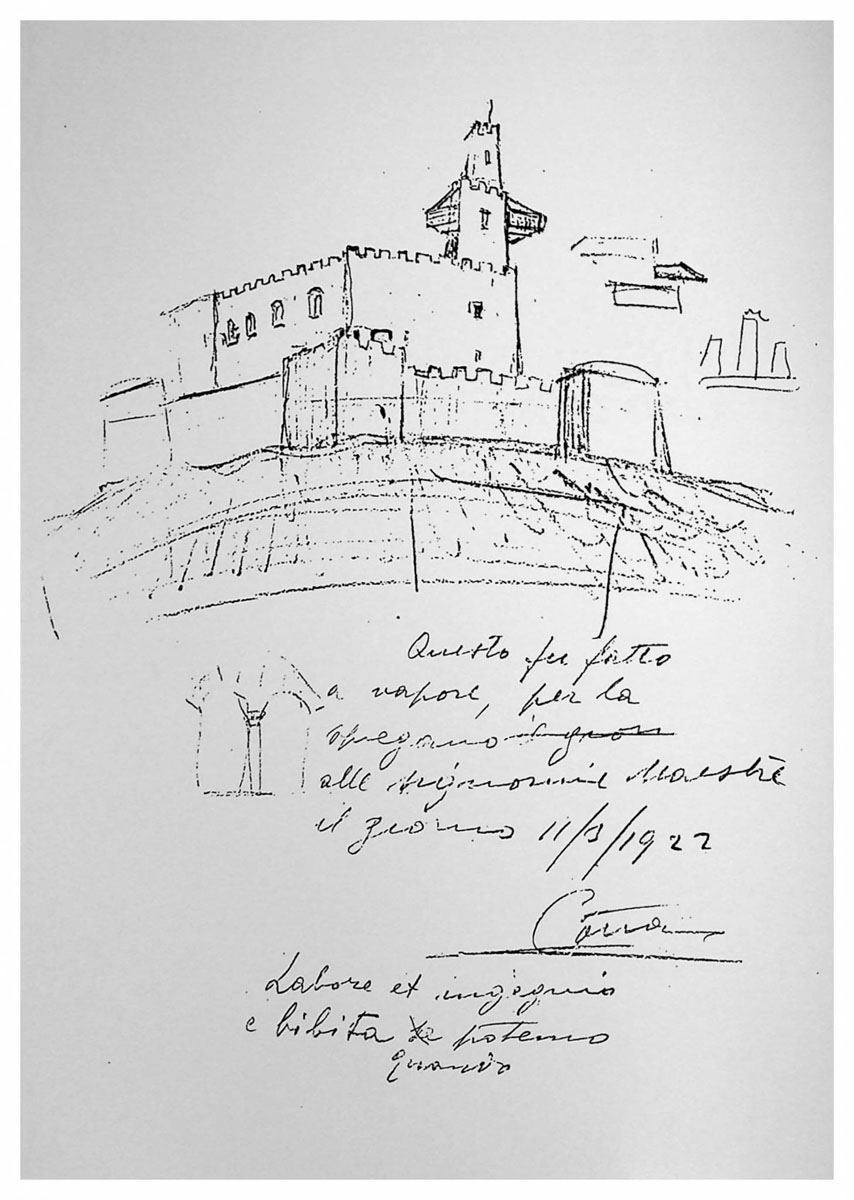 Questo fu fatto
a vapore, per la
spegano
alle signorine Maestre
il giorno 11/3/1922
Labore et ingegnio
e bibita potemo
quando